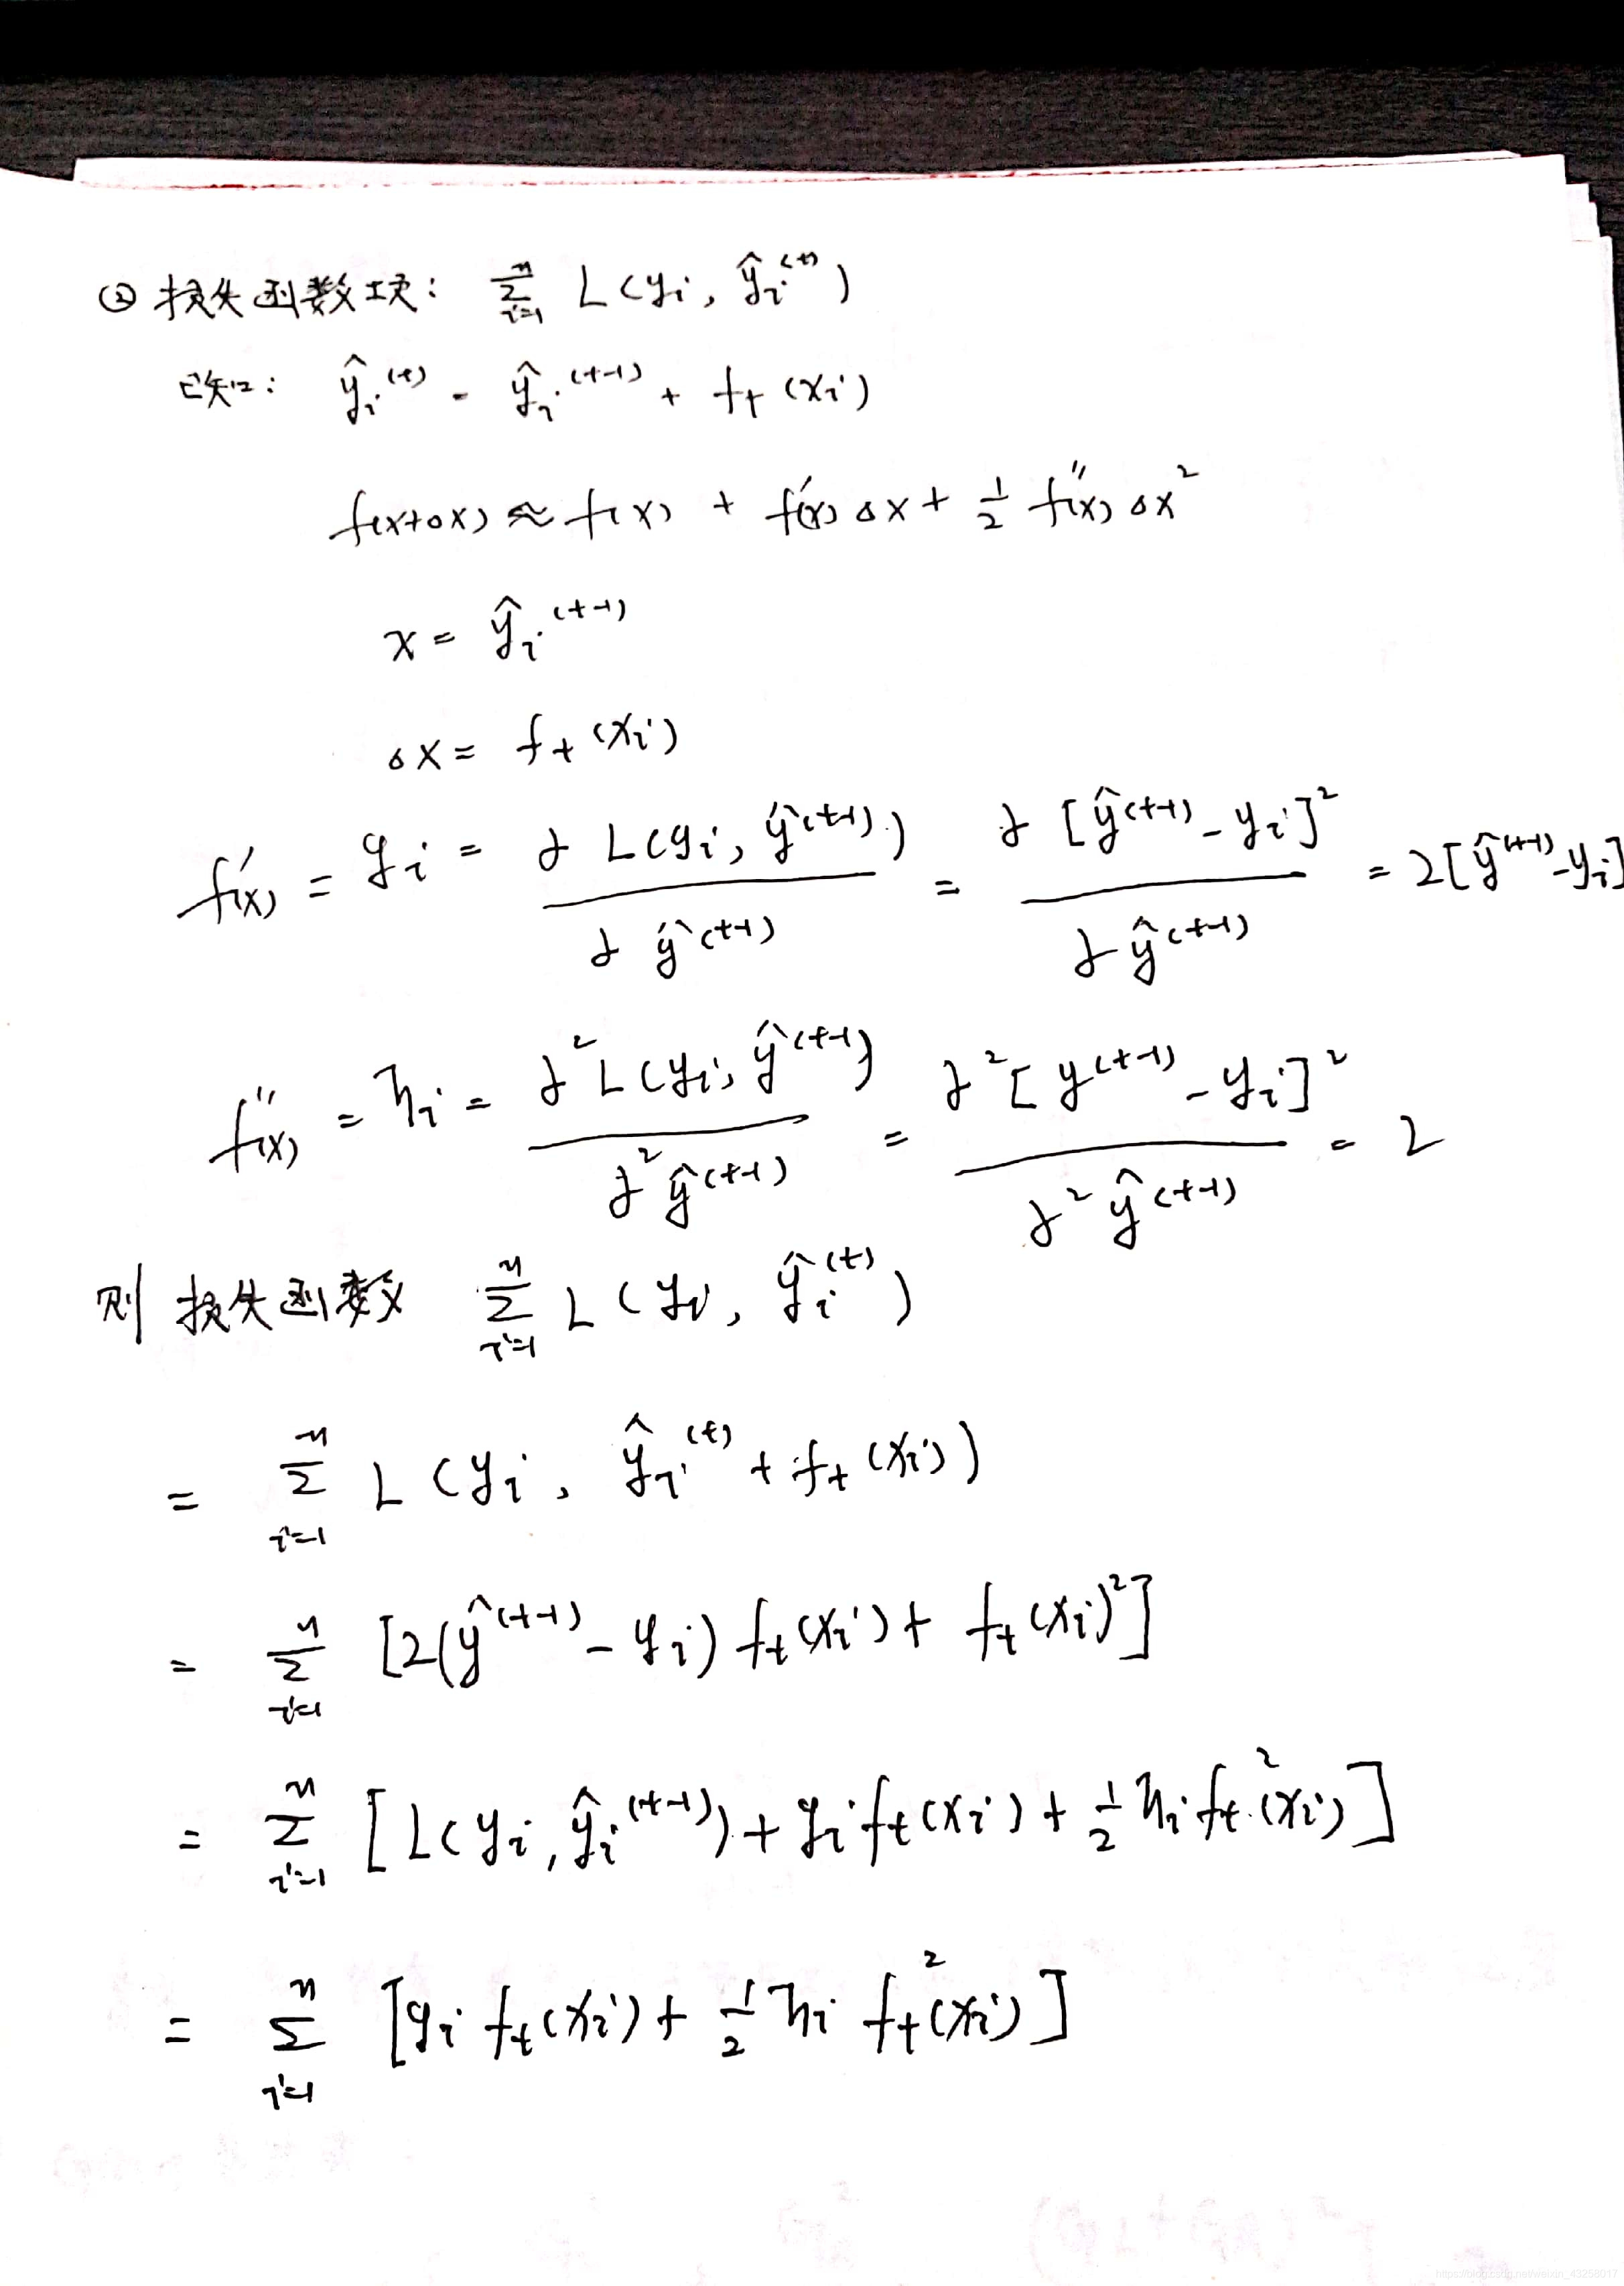 ② 损失函数项: $\sum_{i=1}^{n} L(y_i, \hat{y}_i^{(t)})$
已知: $\hat{y}_i^{(t)} = \hat{y}_i^{(t-1)} + f_t(x_i)$
$f(x+\Delta x) \approx f(x) + f'(x) \Delta x + \frac{1}{2} f''(x) \Delta x^2$
$x = \hat{y}_i^{(t-1)}$
$\Delta x = f_t(x_i)$
$f'(x) = g_i = \frac{\partial L(y_i, \hat{y}^{(t-1)})}{\partial \hat{y}^{(t-1)}} = \frac{\partial [\hat{y}^{(t-1)} - y_i]^2}{\partial \hat{y}^{(t-1)}} = 2[\hat{y}^{(t-1)} - y_i]$
$f''(x) = h_i = \frac{\partial^2 L(y_i, \hat{y}^{(t-1)})}{\partial^2 \hat{y}^{(t-1)}} = \frac{\partial^2 [y^{(t-1)} - y_i]^2}{\partial^2 \hat{y}^{(t-1)}} = 2$
则 损失函数 $\sum_{i=1}^{n} L(y_i, \hat{y}_i^{(t)})$
$= \sum_{i=1}^{n} L(y_i, \hat{y}_i^{(t)} + f_t(x_i))$
$= \sum_{i=1}^{n} [2(\hat{y}^{(t-1)} - y_i) f_t(x_i) + f_t(x_i)^2]$
$= \sum_{i=1}^{n} [L(y_i, \hat{y}_i^{(t-1)}) + g_i f_t(x_i) + \frac{1}{2} h_i f_t^2(x_i)]$
$= \sum_{i=1}^{n} [g_i f_t(x_i) + \frac{1}{2} h_i f_t^2(x_i)]$
https://blog.csdn.net/weixin_43258017